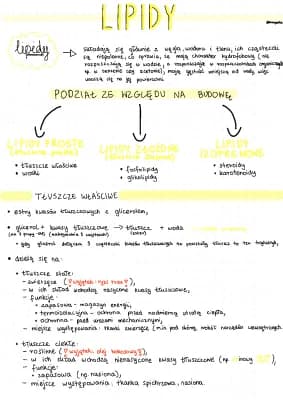 LIPIDY
lipidy
składają się głównie z węgla, wodoru i tlenu, ich cząsteczki
są niepolarne, co sprawia, że mają charakter hydrofobowy (nie
rozpuszczają się w wodzie, a rozpuszczają w rozpuszczalnikach organicznych
np. w benzenie czy acetonie), mają gęstość mniejszą od wody, więc
unoszą się na jej powierzchni
PODZIAŁ ZE WZGLĘDU NA BUDOWĘ
LIPIDY PROSTE
LIPIDY ZŁOŻONE
LIPIDY IZOPRENOWE
• tłuszcze właściwe
• woski
• fosfolipidy
• glikolipidy
• steroidy
• karotenoidy
TŁUSZCZE WŁAŚCIWE
• estry kwasów tłuszczowych z glicerolem,
• glicerol + kwasy tłuszczowe → tłuszcz + woda
• gdy glicerol dołączy 3 cząsteczki kwasów tłuszczowych to powstały tłuszcz to
• dzielą się na:
• tłuszcze stałe:
- zwierzęce (! wyjątek:
- w ich skład wchodzą nasycone kwasy tłuszczowe,
- funkcje:
• zapasowa - magazyn energii,
• termoizolacyjna - ochrona przed nadmierną utratą ciepła,
• ochronna - przed urazami mechanicznymi,
- miejsce występowania: tkanki zwierzęce (m.in pod skórą, wokół narządów wewnętrznych
• tłuszcze ciekłe:
- roślinne (! wyjątek: olej kokosowy!),
- w ich skład wchodzą nienasycone kwasy tłuszczowe (np.
- funkcje:
• zapasowa (np. nasiona),
- miejsce występowania: tkanka spichrzowa, nasiona.